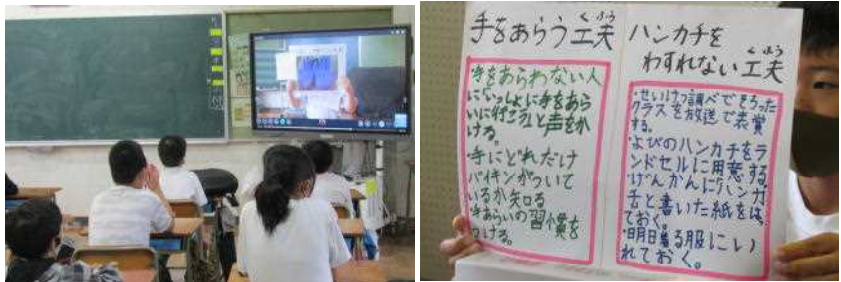 手をあらう工夫
くふう
・手をあらわない人
に「いっしょに手をあら
いに行こう」と声をか
ける。
・手にどれだけ
バイキンがついて
いるか知る
手あらいの習慣を
つける。
ハンカチを
わすれない工夫
くふう
・せいけつ調べでそろった
クラスを放送で表賞
する。
・よびのハンカチをラ
ンドセルに用意する
・げんかんに「ハンカ
チ」と書いた紙をは
ておく。
・明日着る服にい
れておく。